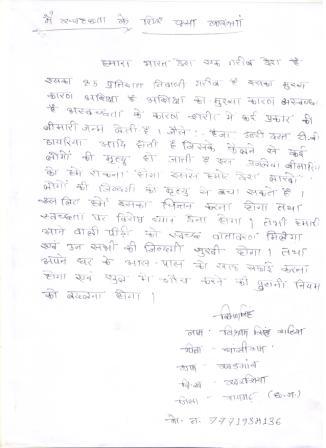 मैं स्वच्छता के लिए क्या करूंगा
हमारा भारत देश एक गरीब देश है
इसका 85 प्रतिशत निवासी गरीब है इसका मुख्य
कारण अशिक्षा है अशिक्षा का मुख्य कारण अस्वच्छता
है अस्वच्छता के कारण शरीर में कई प्रकार की
बीमारी जन्म लेती है । जैसे :- हैजा उल्टी दस्त टी.बी
डायरिया आदि होती है जिसके फैलने से कई
लोगों की मृत्यु हो जाती है इस
को हमे रोकना होगा हमारे देश
लोगों की जिन्दगी को मृत्यु से बचा सकते है ।
इस लिए हमे इसका चिंतन करना होगा तथा
स्वच्छता पर विशेष ध्यान देना होगा । तभी हमारी
आने वाली पीढ़ी को स्वच्छ वातावरण मिलेगा
एवं उन सभी की जिन्दगी सुखी होगा । तथा
अपने घर के आस-पास को साफ सफाई करना
होगा एवं खुले में शौच करने की पुरानी नियम
को बदलना होगा ।
नाम -
पिता -
ग्राम -
जिला - रायगढ़ (छ.ग.)
मो. न.